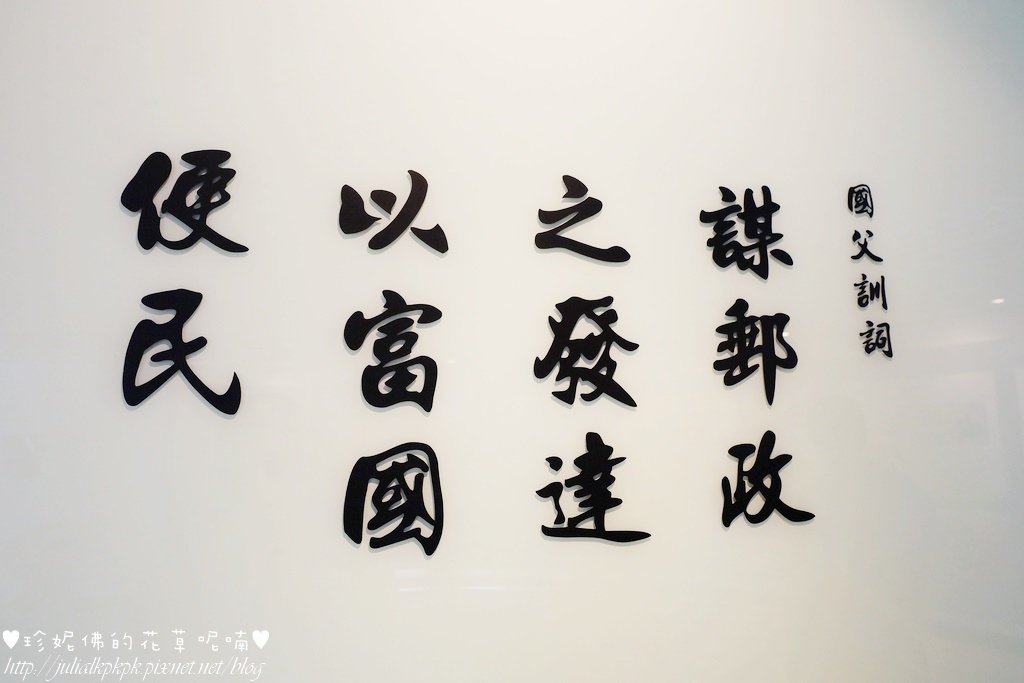 國父訓詞
謀郵政
之發達
以富國
便民
♥珍妮佛的花草呢喃♥
http://julialkpkpk.pixnet.net/blog